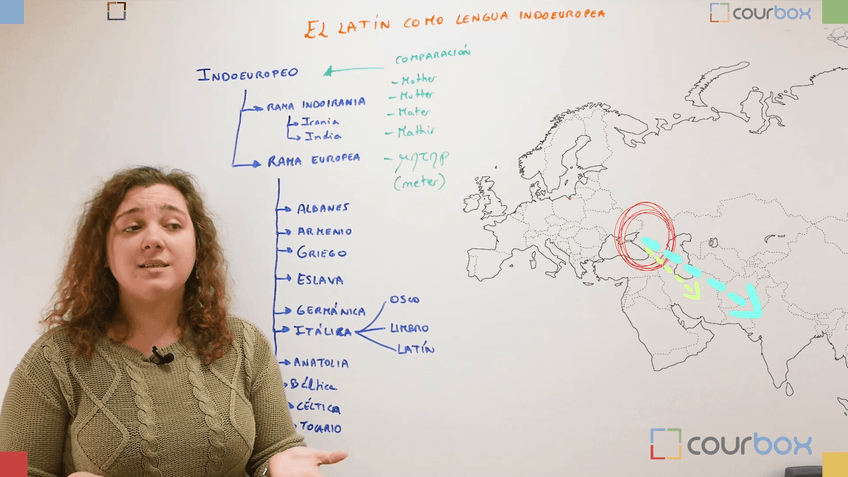 EL LATÍN COMO LENGUA INDOEUROPEA
courbox
INDOEUROPEO
COMPARACIÓN
- Mother
- Mutter
- Mater
- Mathir
- μητηρ
(meter)
RAMA INDOIRANIA
Irania
India
RAMA EUROPEA
ALBANES
ARMENIO
GRIEGO
ESLAVA
GERMÁNICA
ITÁLICA
OSCO
UMBRO
LATÍN
ANATOLIA
Báltica
CÉLTICA
TOCARIO
courbox